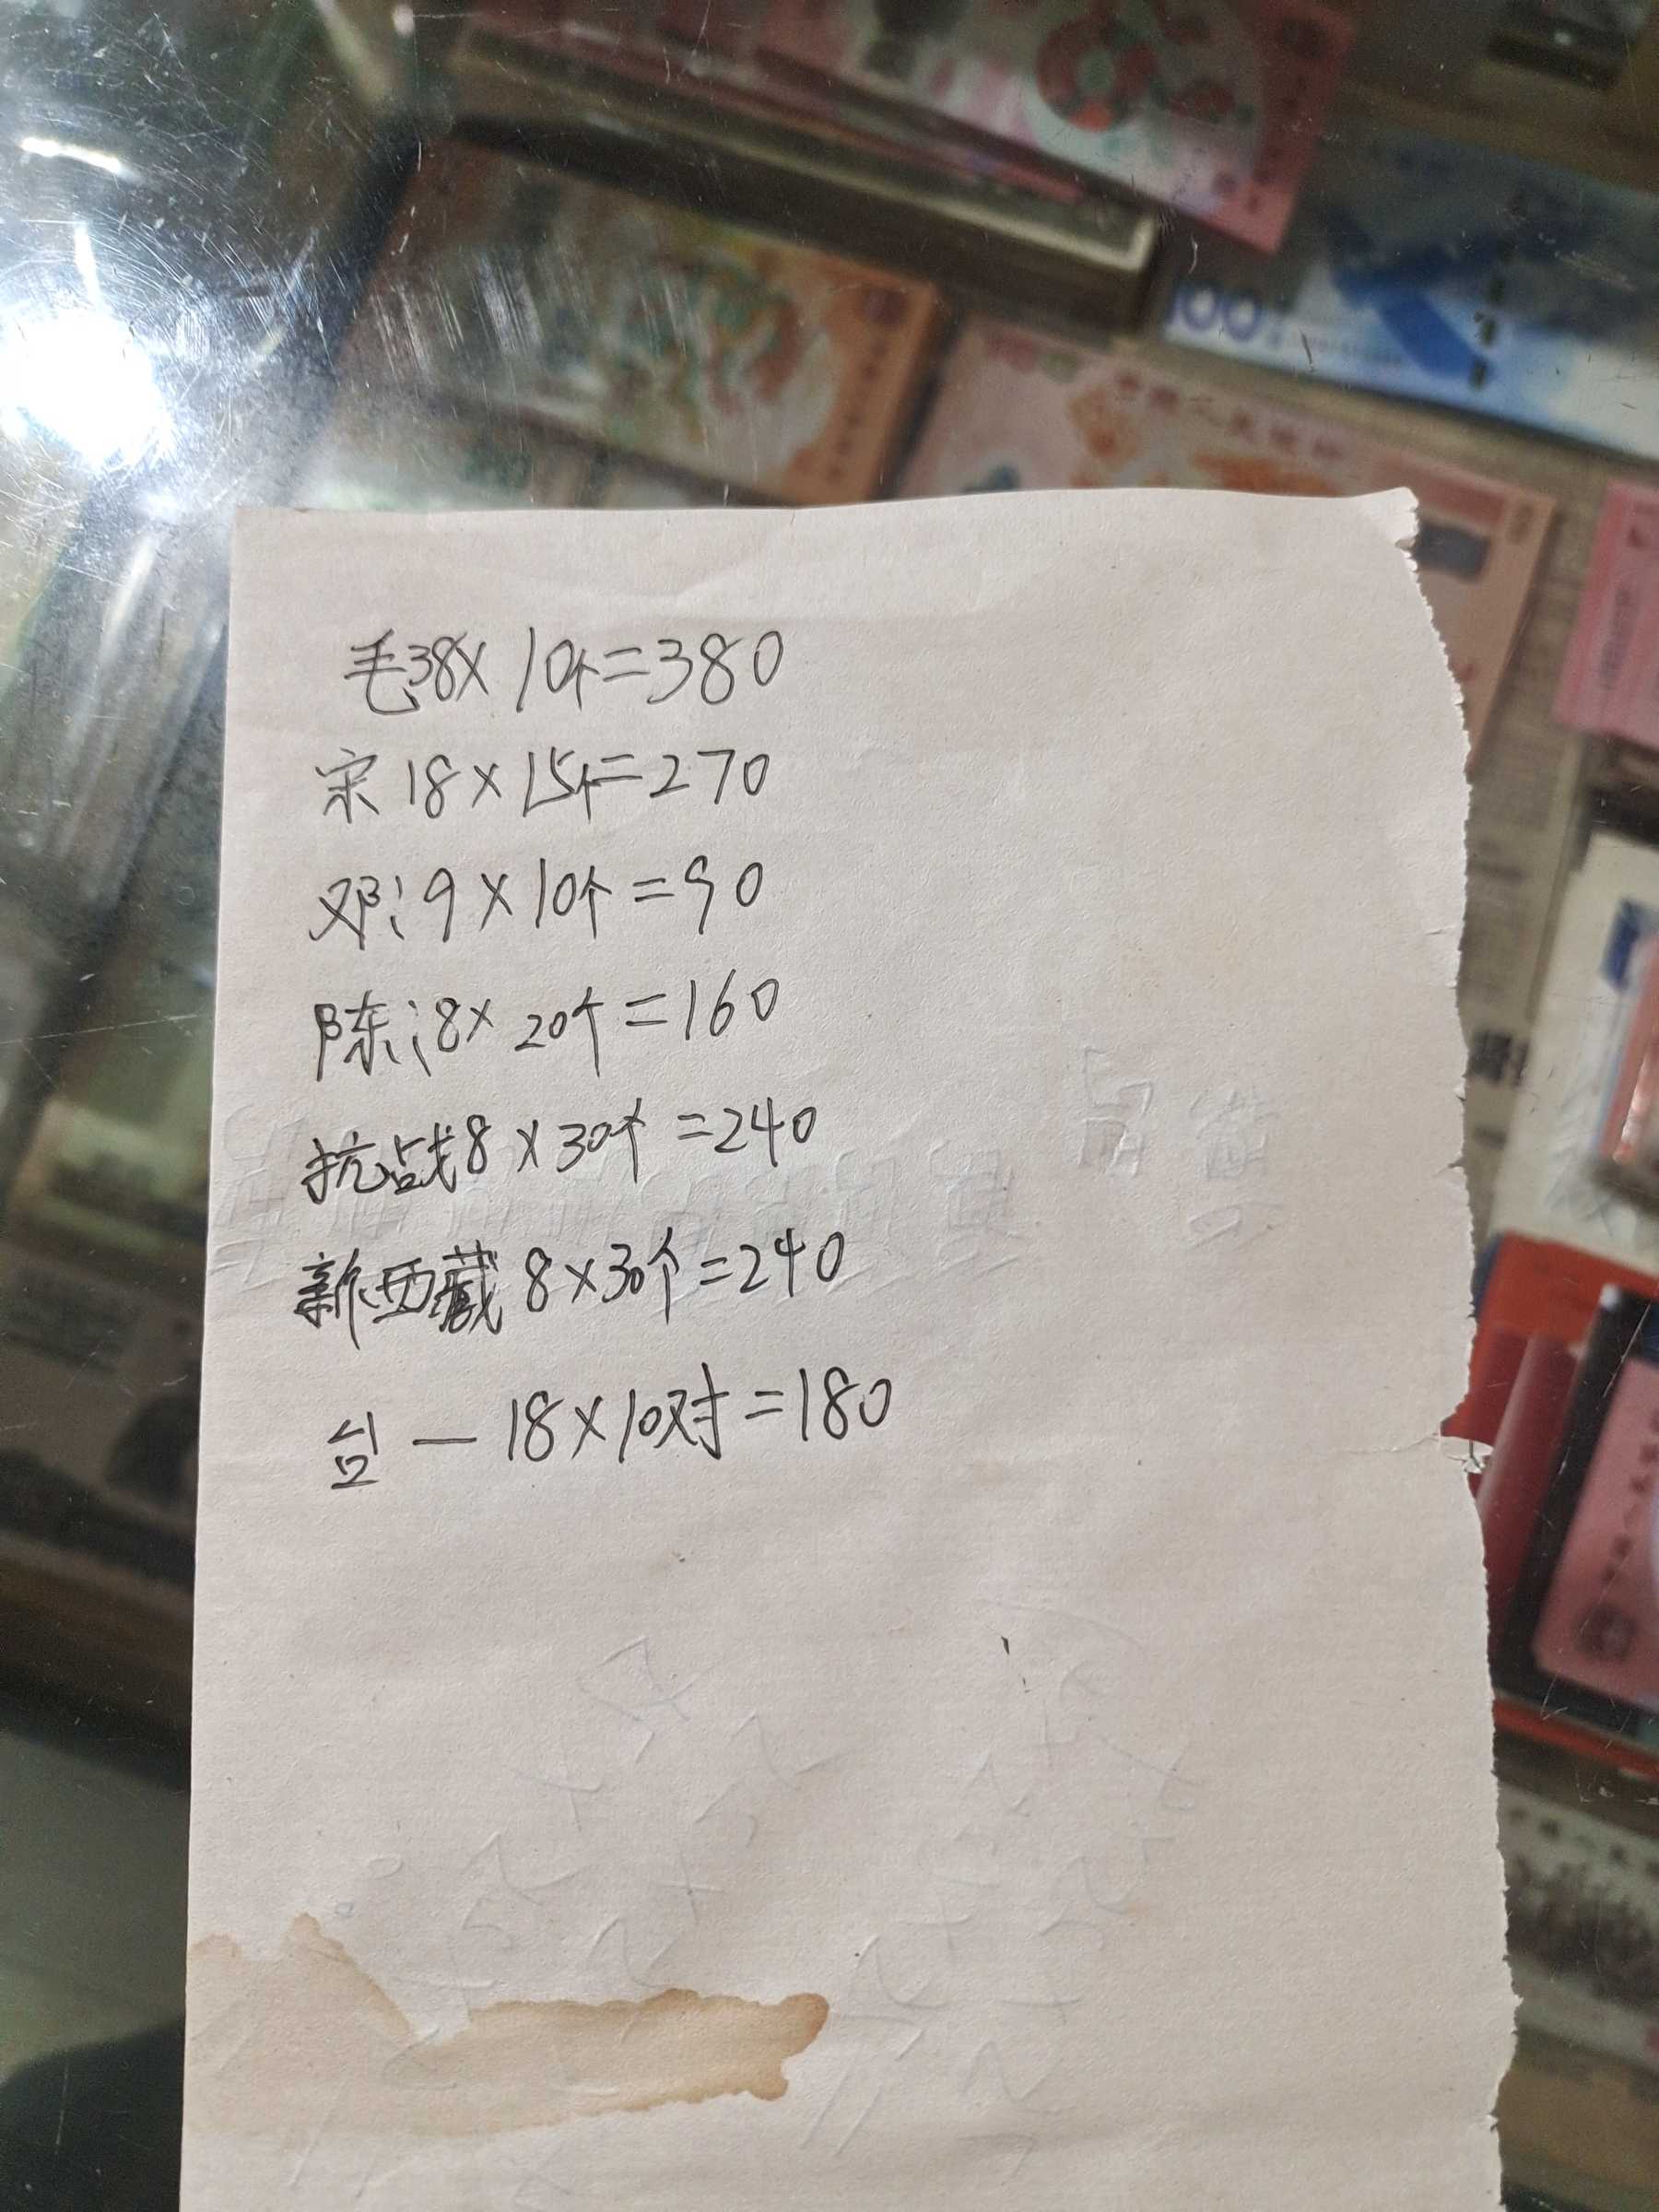 100
毛38×10个=380
宋18×15个=270
邓:9×10个=90
陈:8×20个=160
抗战8×30个=240
新西藏8×30个=240
台一18×10对=180